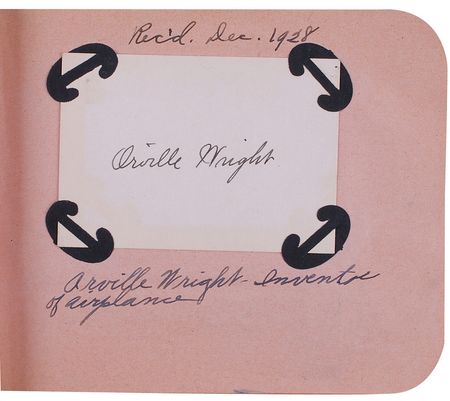 Rec'd. Dec. 1928
Orville Wright
Orville Wright - Inventor
of airplance